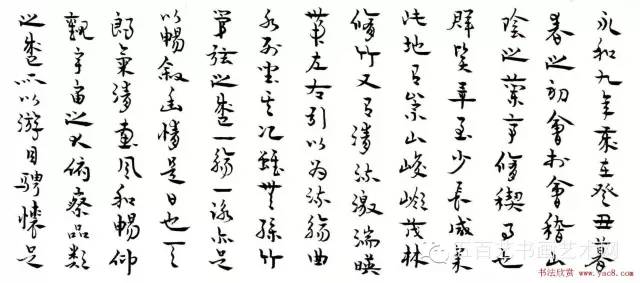 永和九年歲在癸丑暮
春之初會於會稽山
陰之蘭亭脩禊事也
群賢畢至少長咸集
此地有崇山峻領茂林
脩竹又有清流激湍暎
帶左右引以為流觴曲
水列坐其次雖無絲竹
管弦之盛一觴一詠亦足
以暢敘幽情是日也天
朗氣清惠風和暢仰
觀宇宙之大俯察品類
之盛所以游目騁懷足
书画艺术网
书法欣赏 www.yac8.com